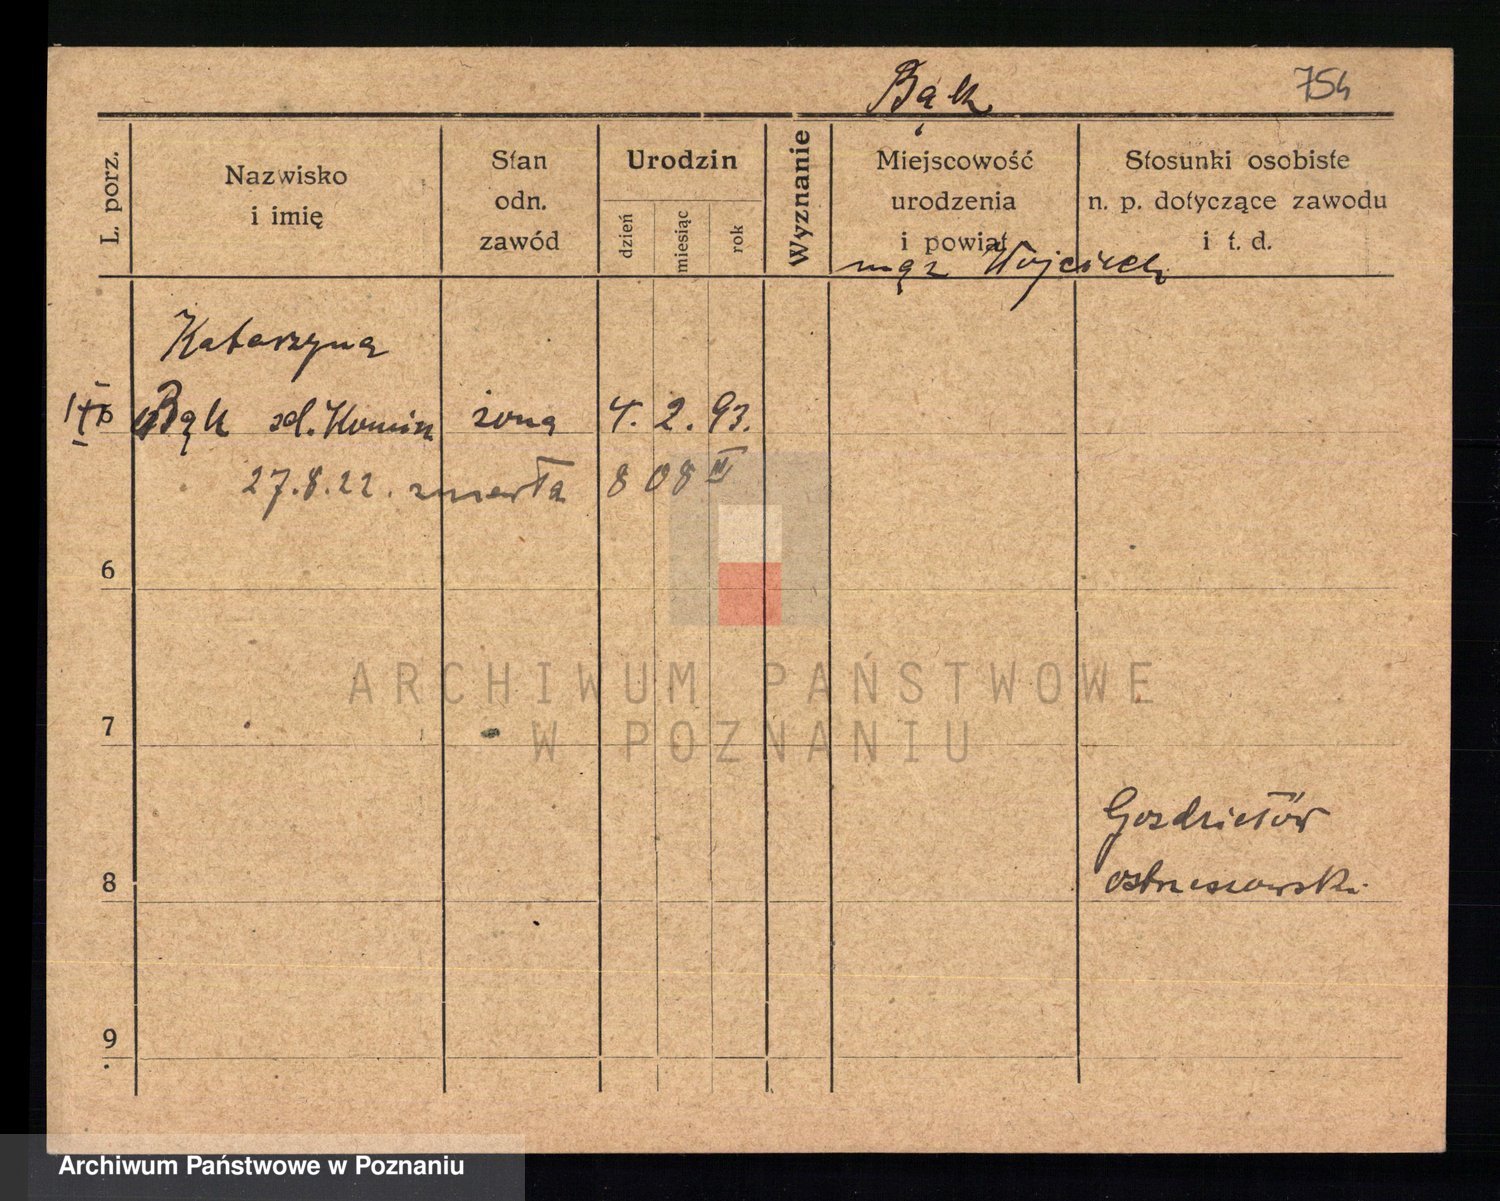 Bąk
754
L. porz.
Nazwisko
i imię
Stan
odn.
zawód
Urodzin
dzień
miesiąc
rok
Wyznanie
Miejscowość
urodzenia
i powiat
Stosunki osobiste
n. p. dotyczące zawodu
i t. d.
mąż Wojciech
Katarzyna
Bąk zd. żona 4. 2. 93.
27.8.22. zmarła 808 III
6
7
8
9
Gozdzietów
ostrzeszowski
ARCHIWUM PAŃSTWOWE
W POZNANIU
Archiwum Państwowe w Poznaniu